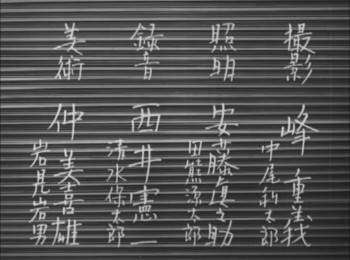 撮影
峰 重義
中尾利太郎
照明
安藤真之助
田熊源太郎
録音
西井憲一
清水保太郎
美術
仲 美喜雄
岩見岩男